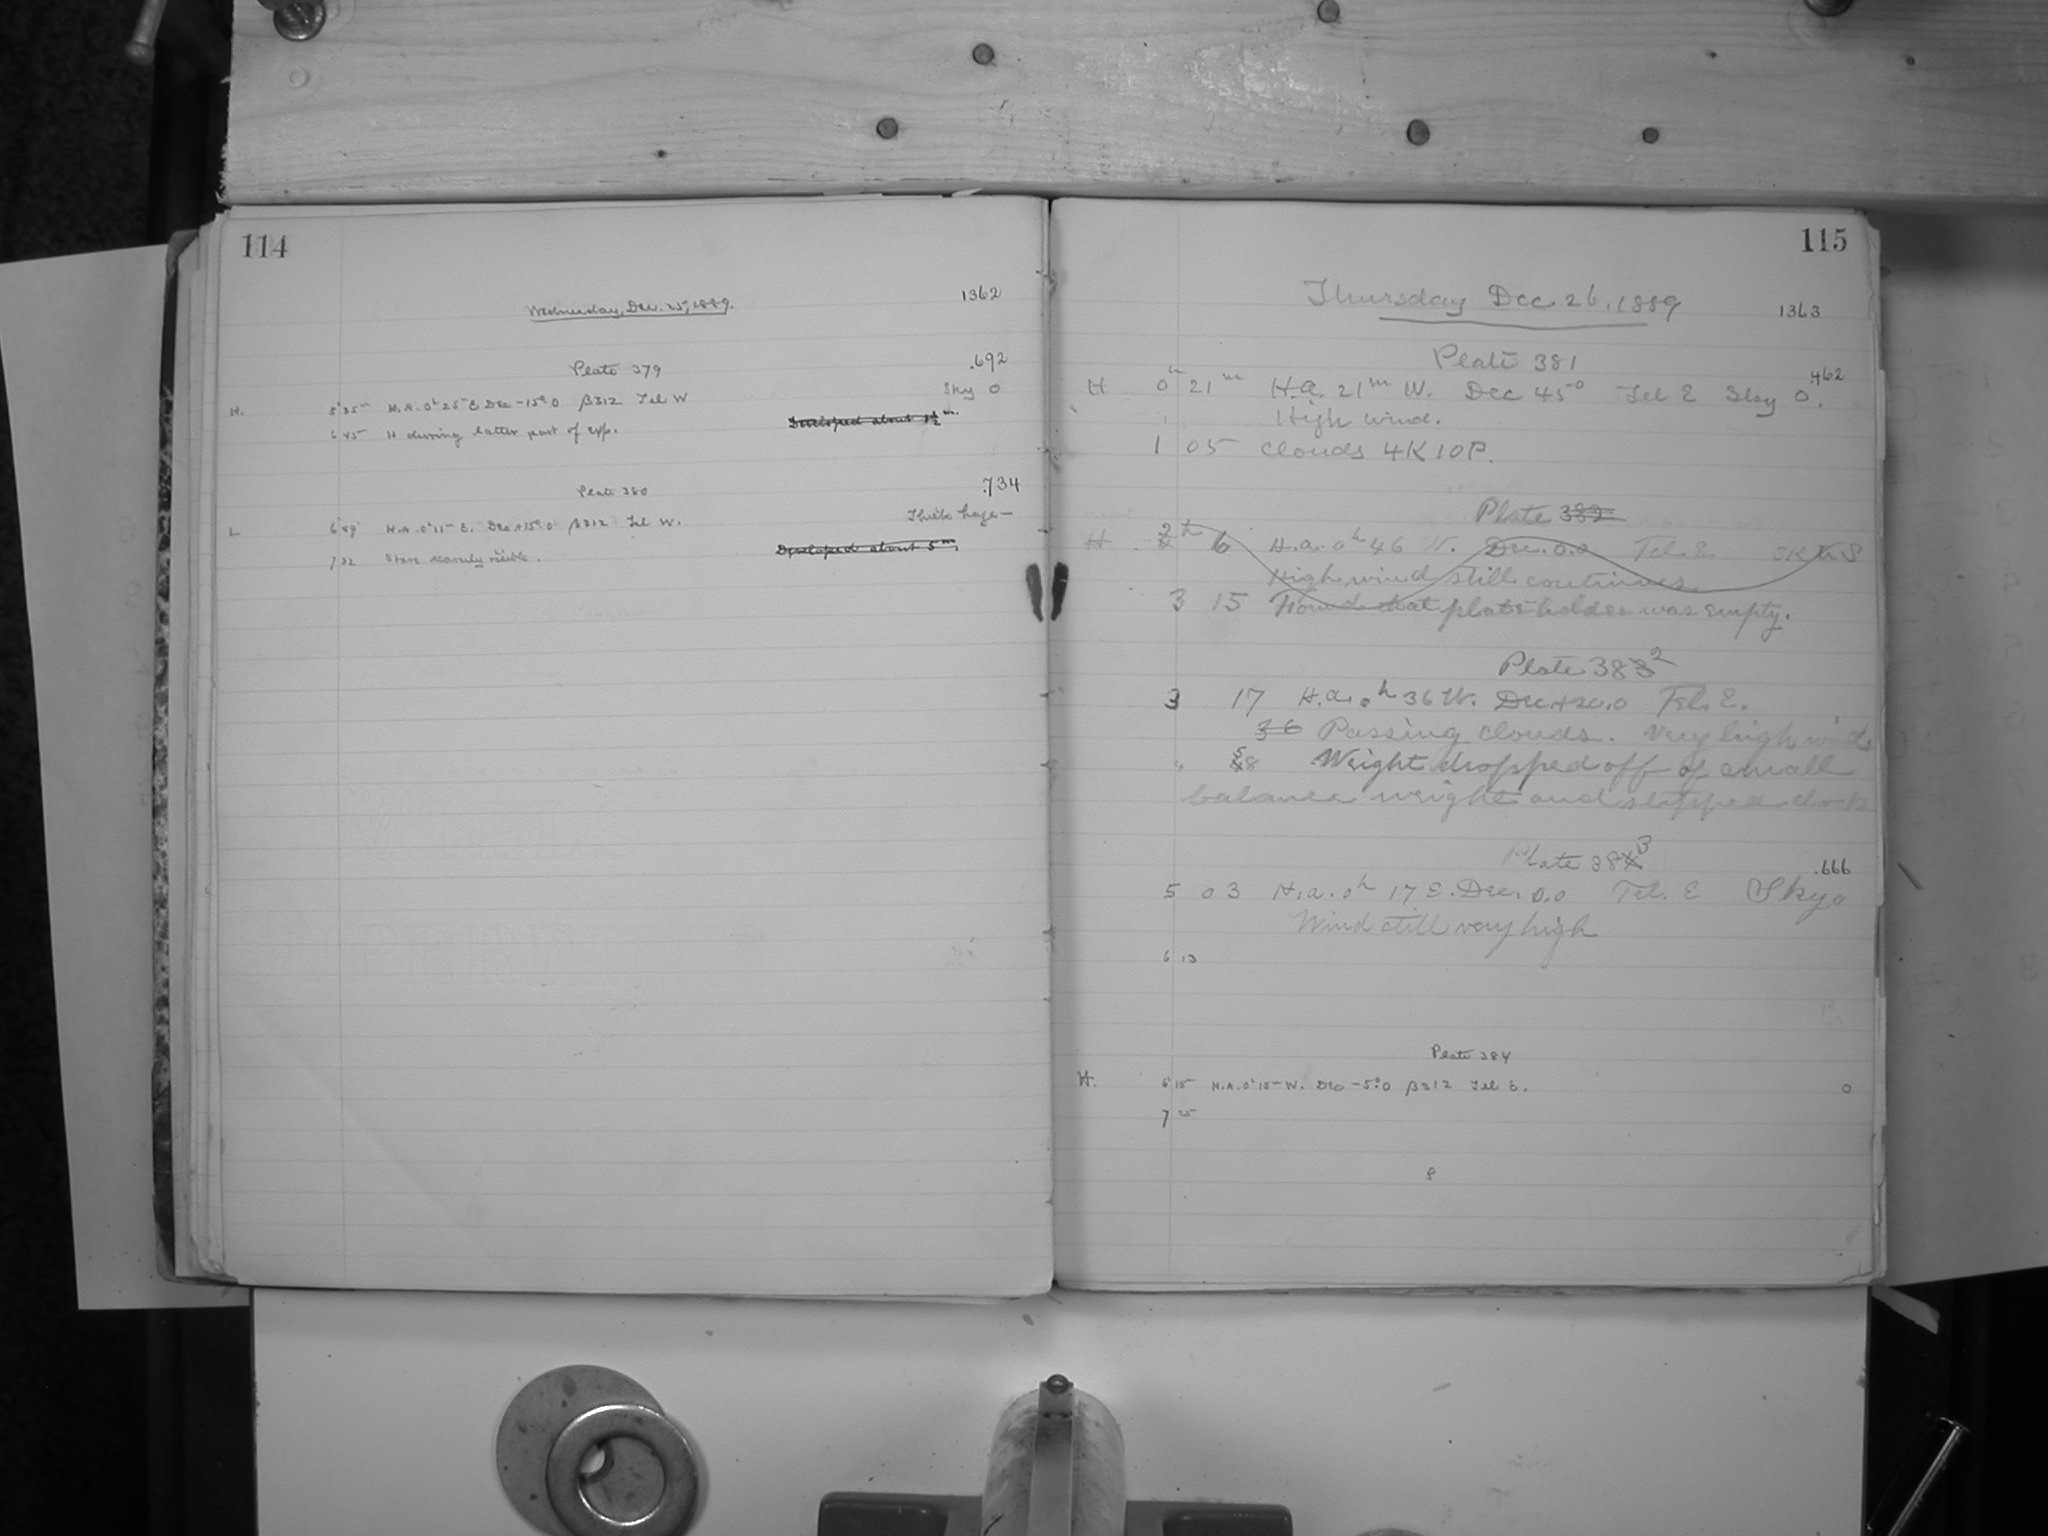 114
Wednesday, Dec. 25, 1889.
1362
Plate 379
.692
Sky 0
H. 5h35m H.A. 0h25m E Dec -15°.0 β312 Tel W
6 45 H during latter part of exp.
Developed about 1½m.
Plate 380
.734
L 6 49 H.A. 0h11m E. Dec +15°.0 β312 Tel W.
Thick haze—
7 32 Stars scarcely visible.
Developed about 5m.
115
Thursday Dec. 26. 1889
1363
Plate 381
.462
H 0h 21m H.a. 21m W. Dec 45°0 Tel E Sky 0.
High wind.
1 05 Clouds 4K10P.
Plate 382
H 2h 6 H.a. 0h 46 W. Dec. 0.0 Tel. E 3K S
High wind still continues.
3 15 Found that plate holder was empty.
Plate 3832
3 17 H.a. 0h 36 W. Dec.+20.0 Tel. E.
36 Passing clouds. Very high wind
58 Weight dropped off of small
balance weight and stopped clock
Plate 3843
.666
5 03 H.a. 0h 17 E. Dec. 0.0 Tel. E Sky 0
Wind still very high
6 13
Plate 384
H. 6 15 H.A. 0h15m W. Dec -5°.0 β312 Tel E. 0
7